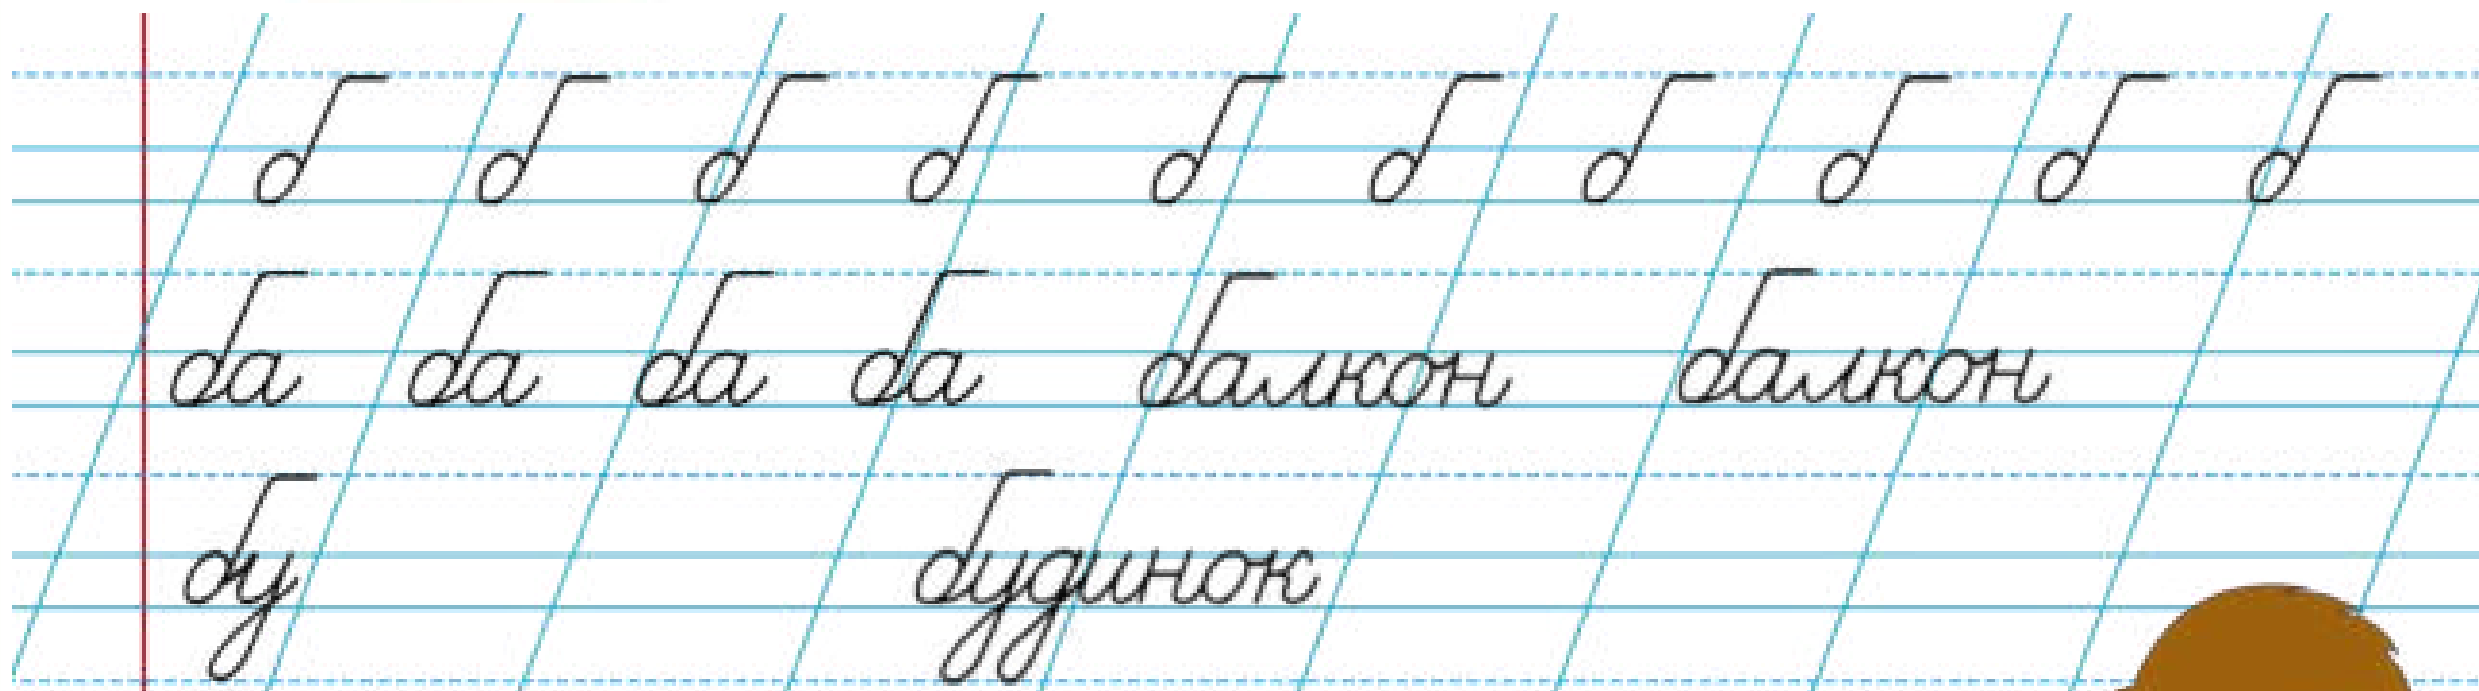 б б б б б б б б б б
ба ба ба ба балкон балкон
бу будинок